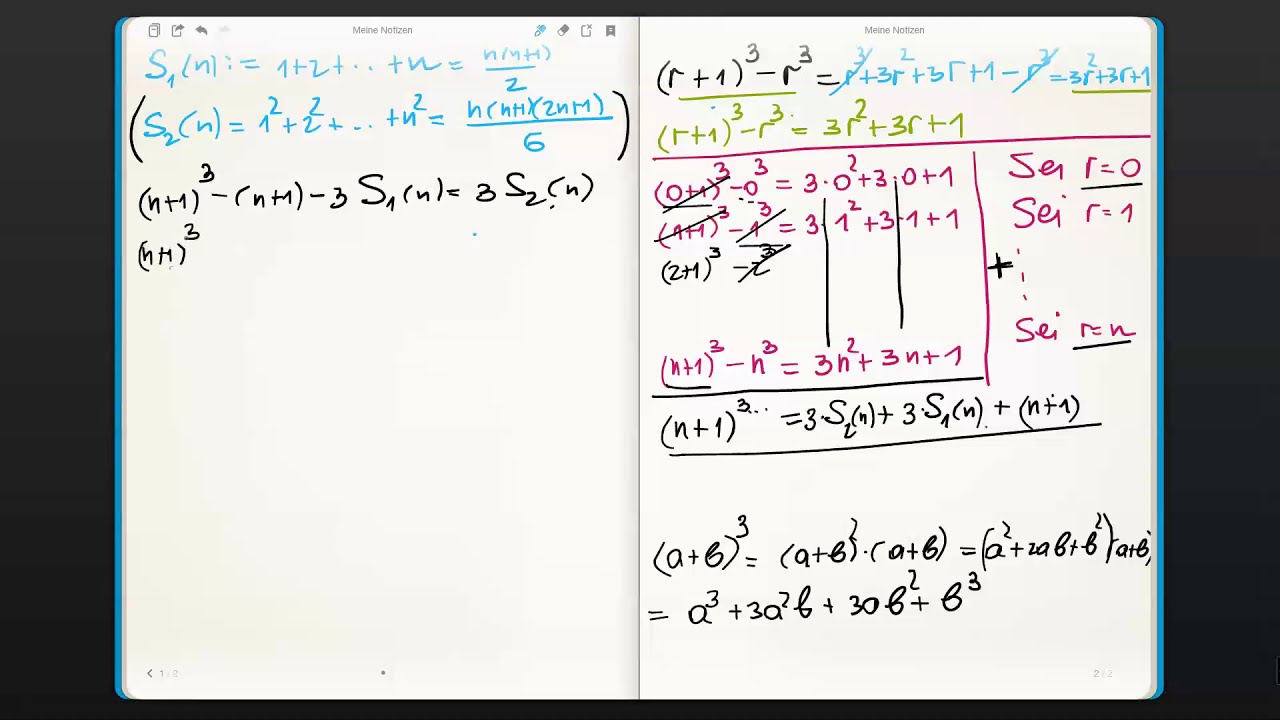 Meine Notizen
S₁(n) := 1+2+...+n = n(n+1)/2
(S₂(n) = 1²+2²+...+n² = n(n+1)(2n+1)/6)
(n+1)³ - (n+1) - 3 S₁(n) = 3 S₂(n)
(n+1)³
1 / 2
Meine Notizen
(r+1)³ - r³ = r³+3r²+3r+1-r³ = 3r²+3r+1
(r+1)³ - r³ = 3r²+3r+1
(0+1)³ - 0³ = 3·0²+3·0+1 Sei r=0
(1+1)³ - 1³ = 3·1²+3·1+1 Sei r=1
(2+1)³ - 2³ + ⋮
Sei r=n
(n+1)³ - n³ = 3n²+3n+1
(n+1)³ = 3·S₂(n)+3·S₁(n)+(n+1)
(a+b)³ = (a+b)²·(a+b) = (a²+2ab+b²)(a+b)
= a³+3a²b+3ab²+b³
2 / 2